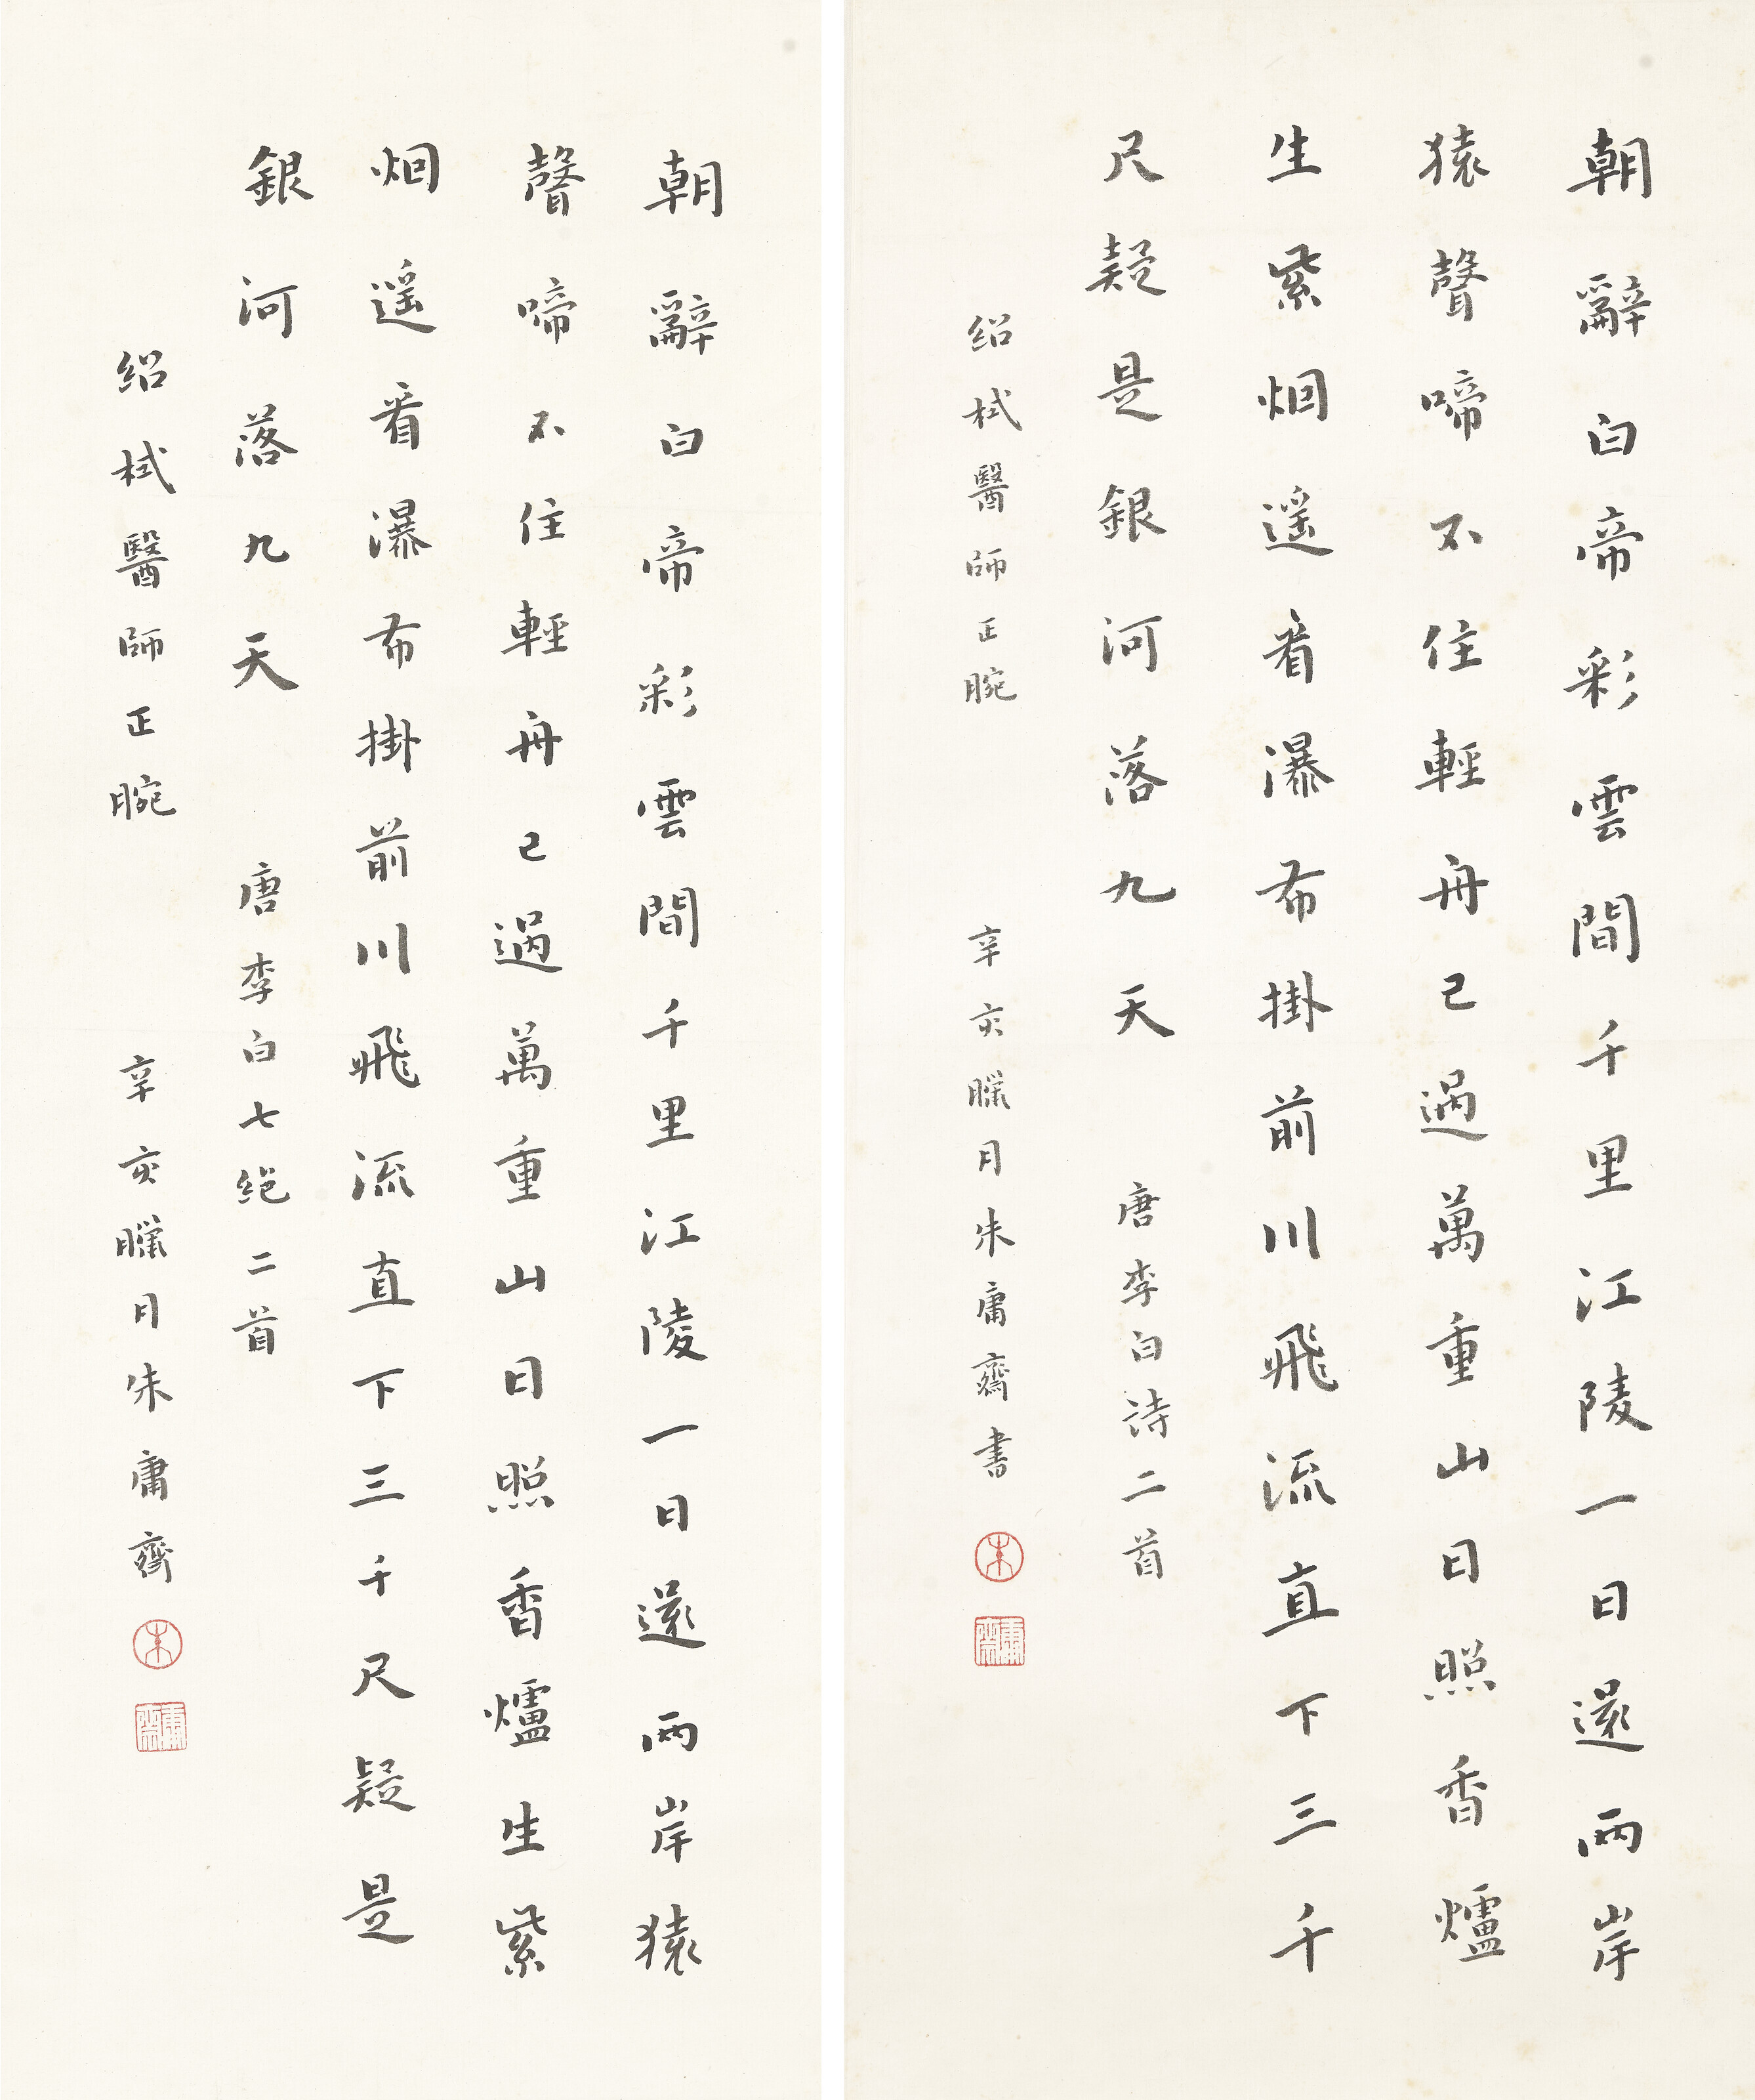 朝辭白帝彩雲間千里江陵一日還兩岸
猿聲啼不住輕舟已過萬重山日照香爐
生紫烟遥看瀑布掛前川飛流直下三千
尺疑是銀河落九天
唐李白詩二首
紹栻醫師正腕
辛亥臘月朱庸齋書
朱
庸齋
朝辭白帝彩雲間千里江陵一日還兩岸猿
聲啼不住輕舟已過萬重山日照香爐生紫
烟遥看瀑布掛前川飛流直下三千尺疑是
銀河落九天
唐李白七絕二首
紹栻醫師正腕
辛亥臘月朱庸齋
朱
庸齋